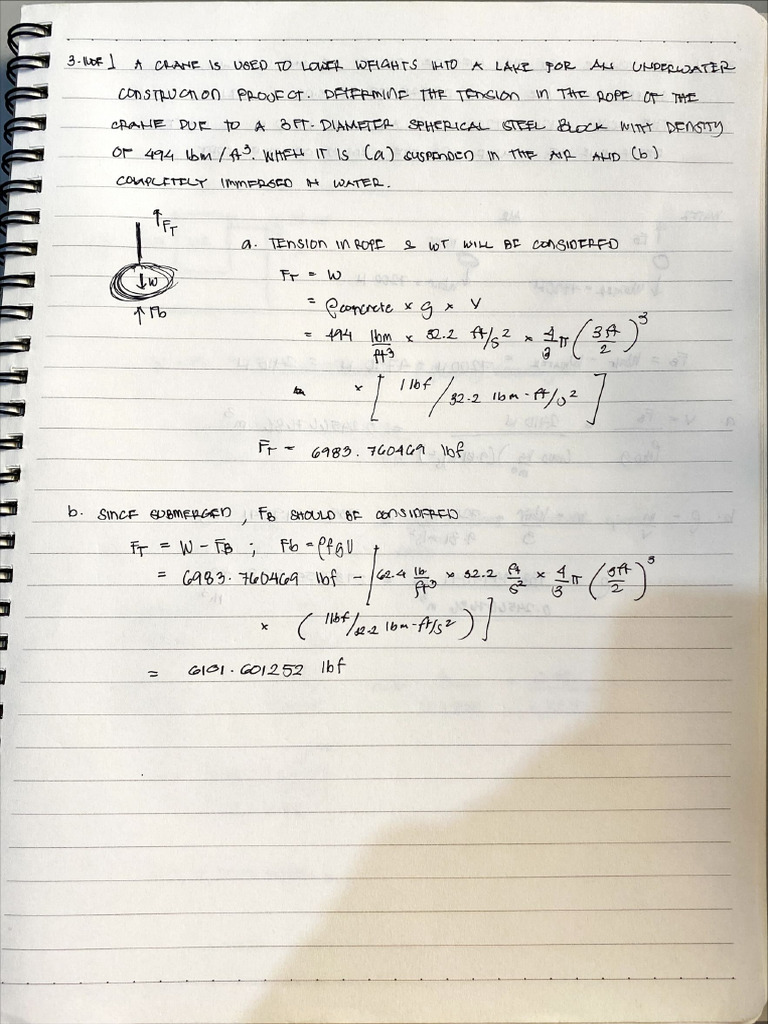 3-108F] A CRANE IS USED TO LOWER WEIGHTS INTO A LAKE FOR AN UNDERWATER
CONSTRUCTION PROJECT. DETERMINE THE TENSION IN THE ROPE OF THE
CRANE DUE TO A 3FT-DIAMETER SPHERICAL STEEL BLOCK WITH DENSITY
OF 494 lbm/ft³. WHEN IT IS (a) SUSPENDED IN THE AIR AND (b)
COMPLETELY IMMERSED IN WATER.
↑FT
↓W
↑Fb
a. TENSION IN ROPE & WT WILL BE CONSIDERED
FT = W
= ρconcrete × g × V
= 494 lbm/ft³ × 32.2 ft/s² × 4/3 π (3ft/2)³
× [1 lbf / 32.2 lbm-ft/s²]
FT = 6983.760469 lbf
b. SINCE SUBMERGED, FB SHOULD BE CONSIDERED
FT = W - FB ; Fb = ρfgV
= 6983.760469 lbf - [62.4 lb/ft³ × 32.2 ft/s² × 4/3 π (3ft/2)³
× (1lbf/32.2 lbm-ft/s²)]
= 6101.601252 lbf